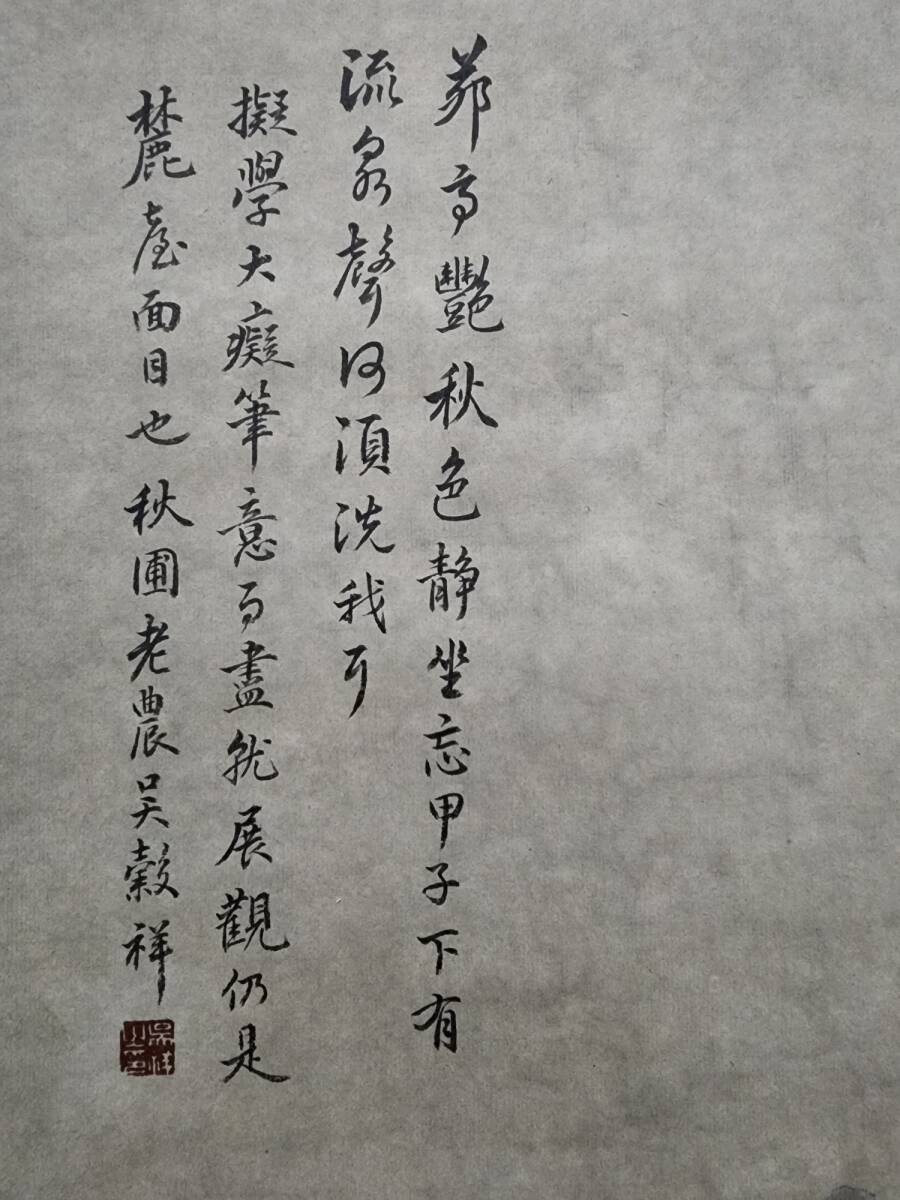 茆亭艷秋色靜坐忘甲子下有
流泉聲何湏洗我耳
擬學大癡筆意而畫就展觀仍是
麓臺面目也秋圃老農吳穀祥